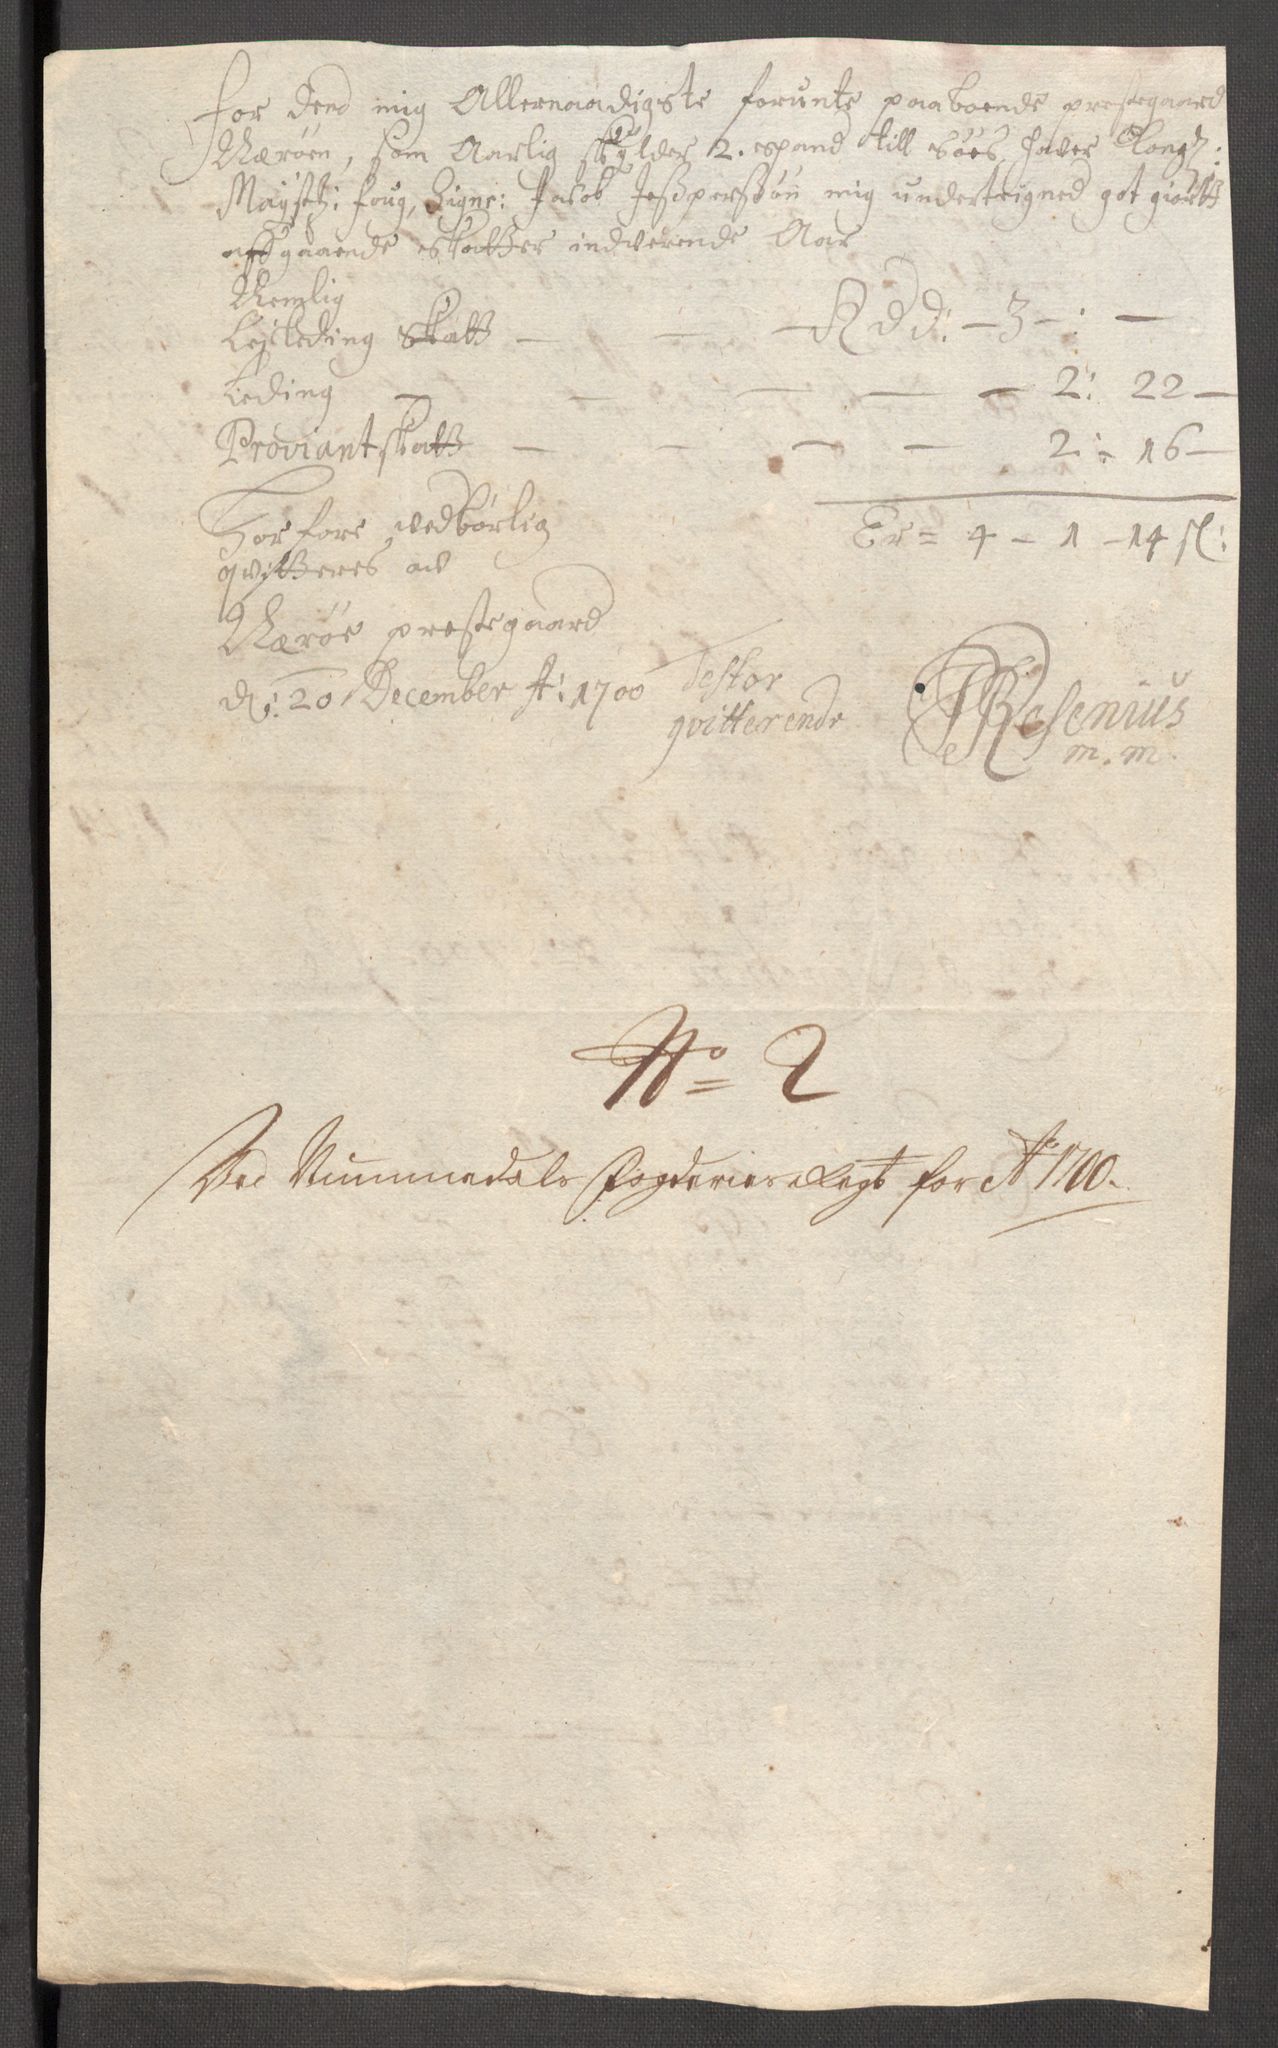 For dend mig Allernaadigste forunte paaboende prestegaard
Nærøen, som Aarlig skylder 2. spand till Söes, haver Kongl:
Mayst: foug, Signr: Jacob Jesperssøn mig undertegned got giortt
affgaaende skatter indverende Aar
Nemlig
Lejleding Skatt — — — Rdd: — 3 — : —
Leding — — — — — 2: 22 —
Proviant skatt — — — — 2: 16 —
Er = 4 — 1 — 14 sl:
Hor fore vedbørlig
qvitteres av
Nærøe prestegaard
d: 20 December A: 1700
Testor
qvitterende
Resenius
m. m.
No = 2
Ved Nummedals Fogderies Regt for Ao 1700.